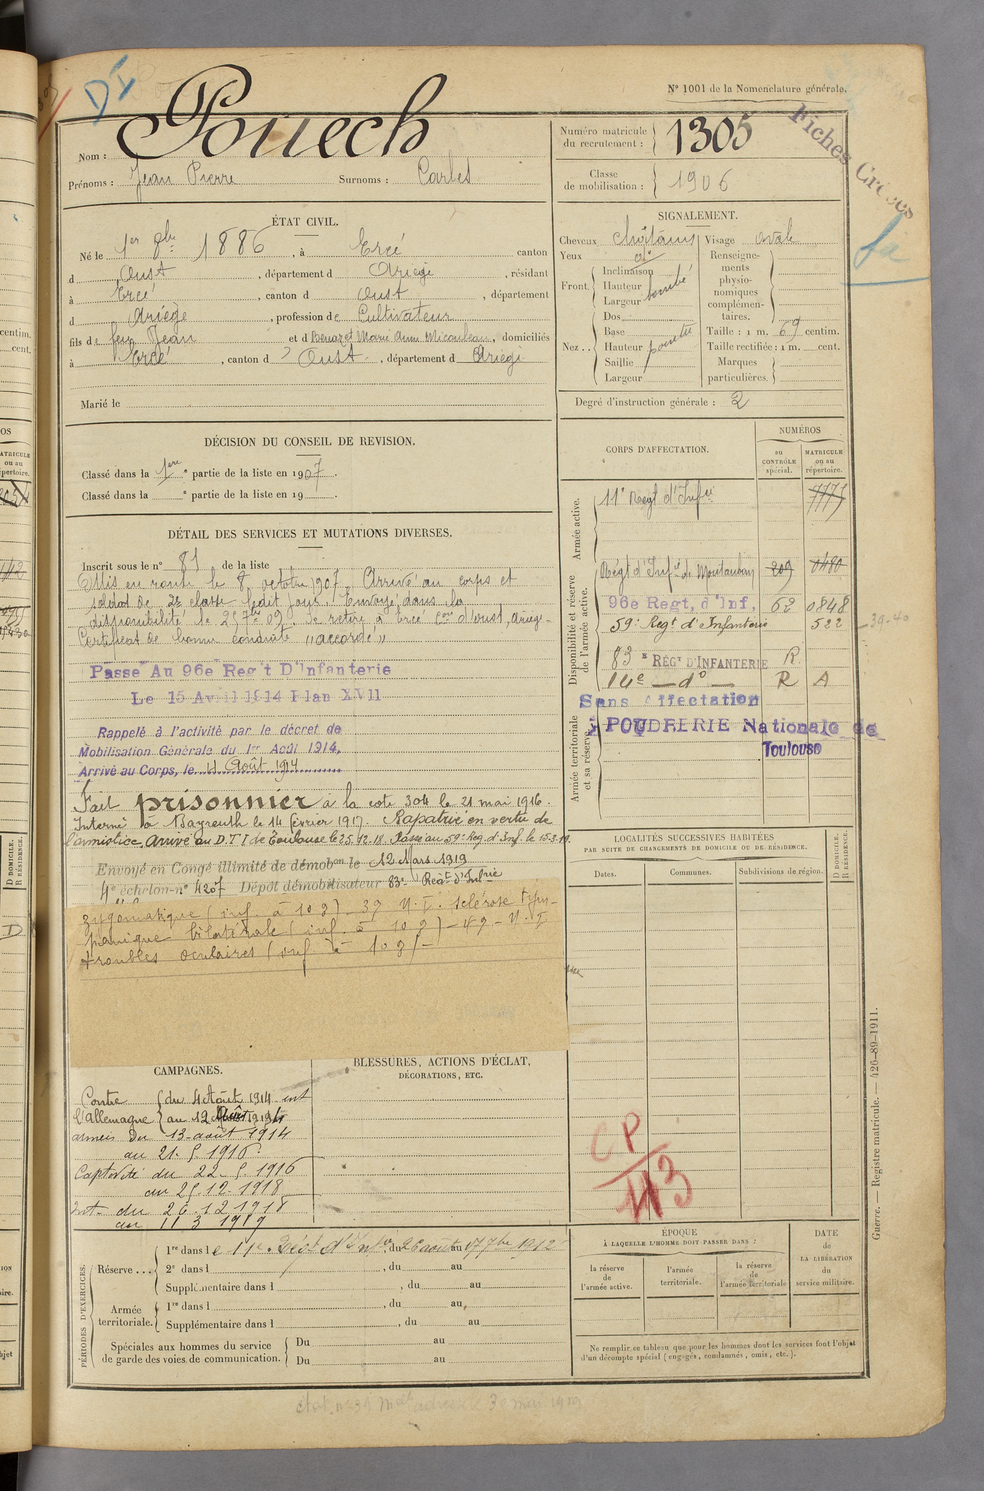 Nº 1001 de la Nomenclature générale.
Fiches Créées
Pouech
Nom :
Prénoms : Jean Pierre Surnoms : Carlet
Numéro matricule du recrutement : 1305
Classe de mobilisation : 1906
ÉTAT CIVIL.
Né le 1er 8bre 1886, à Ercé canton
d Oust, département d Ariège, résidant
à Ercé, canton d Oust, département
d Ariège, profession de Cultivateur
fils de feu Jean et d Benazet Marie Anne Micouleau, domiciliés
à Ercé, canton d Oust, département d Ariège
Marié le
SIGNALEMENT.
Cheveux châtains Visage ovale
Yeux
Front. Inclinaison
Hauteur
Largeur bombé
Nez .. Dos
Base
Hauteur pointu
Saillie
Largeur
Renseigne-
ments
physio-
nomiques
complémen-
taires.
Taille : 1 m. 69 centim.
Taille rectifiée : 1 m. cent.
Marques
particulières.
Degré d'instruction générale : 2
DÉCISION DU CONSEIL DE REVISION.
Classé dans la 1ere partie de la liste en 1907.
Classé dans la e partie de la liste en 19 .
DÉTAIL DES SERVICES ET MUTATIONS DIVERSES.
Inscrit sous le nº 81 de la liste
Mis en route le 8 octobre 1907. Arrivé au corps et
soldat de 2e classe ledit jour. Envoyé dans la
disponibilité le 25 7bre 09. Se retire à Ercé Con d'Oust, Ariège
Certificat de bonne conduite "accordé"
Passé Au 96e Reg't D'Infanterie
Le 15 Avril 1914 Plan XVII
Rappelé à l'activité par le décret de
Mobilisation Générale du 1er Août 1914.
Arrivé au Corps, le 4 Août 1914
Fait prisonnier à la cote 304 le 21 mai 1916.
Interné à Bayreuth le 14 février 1917. Rapatrié en vertu de
l'armistice, Arrivé au D.T.I de Toulouse le 25.12.18. Passé au 59e Reg. d'Inf. le 15-3-19.
Envoyé en Congé illimité de démobon le 12 Mars 1919
4e échelon nº 4207 Dépôt démobilisateur 83e Regt d'Infrie
zygomatique (inf. à 10 %) - 3º N.I. sclérose tym-
panique bilatérale (inf. à 10 %) - 4º - N.I
troubles oculaires (inf à 10 %) -
CORPS D'AFFECTATION.
NUMÉROS
au
CONTRÔLE
spécial.
MATRICULE
ou au
répertoire.
Armée active.
11e Regt d'Infie
Disponibilité et réserve
de l'armée active.
Regt d'Infie de Montauban 209
96e Regt, d'Inf, 62 0848
59e Regt d'Infanterie 522
39-40
83e RÉGt D'INFANTERIE R
14e — do — R A
Armée territoriale
et sa réserve.
Sans Affectation
POUDRERIE Nationale de
Toulouse
LOCALITÉS SUCCESSIVES HABITÉES
PAR SUITE DE CHANGEMENTS DE DOMICILE OU DE RÉSIDENCE.
Dates. Communes. Subdivisions de région. D DOMICILE. R RÉSIDENCE.
CAMPAGNES.
Contre l'Allemagne du 4 Août 1914 int
au 12 Août 1914
armées du 13 août 1914
au 21.5.1916
Captivité du 22.5.1916
au 25.12.1918
Int. du 26.12.1918
au 11 3 1919
BLESSURES, ACTIONS D'ÉCLAT,
DÉCORATIONS, ETC.
CP
113
PÉRIODES D'EXERCICES.
Réserve ... 1re dans le 11e Régt d'Infie du 26 août au 17 7bre 1912
2e dans l , du au
Supplémentaire dans l , du au
Armée
territoriale. 1re dans l , du au
Supplémentaire dans l , du au
Spéciales aux hommes du service
de garde des voies de communication. Du au
Du au
ÉPOQUE
À LAQUELLE L'HOMME DOIT PASSER DANS :
la réserve
de
l'armée active.
l'armée
territoriale.
la réserve
de
l'armée territoriale
DATE
de
LA LIBÉRATION
du
service militaire.
Ne remplir ce tableau que pour les hommes dont les services font l'objet
d'un décompte spécial (engagés, condamnés, omis, etc.).
Guerre. — Registre matricule. — 426-89-1911.